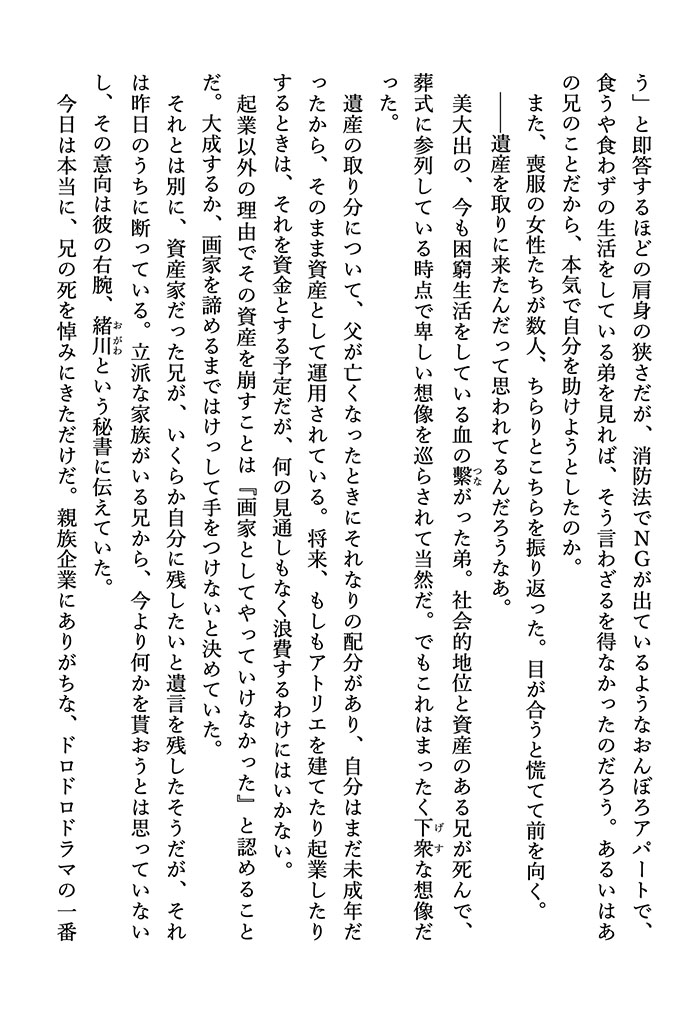 う」と即答するほどの肩身の狭さだが、消防法でNGが出ているようなおんぼろアパートで、
食うや食わずの生活をしている弟を見れば、そう言わざるを得なかったのだろう。あるいはあ
の兄のことだから、本気で自分を助けようとしたのか。
また、喪服の女性たちが数人、ちらりとこちらを振り返った。目が合うと慌てて前を向く。
――遺産を取りに来たんだって思われてるんだろうなあ。
美大出の、今も困窮生活をしている血の繫がった弟。社会的地位と資産のある兄が死んで、
葬式に参列している時点で卑しい想像を巡らされて当然だ。でもこれはまったく下衆な想像だ
った。
遺産の取り分について、父が亡くなったときにそれなりの配分があり、自分はまだ未成年だ
ったから、そのまま資産として運用されている。将来、もしもアトリエを建てたり起業したり
するときは、それを資金とする予定だが、何の見通しもなく浪費するわけにはいかない。
起業以外の理由でその資産を崩すことは『画家としてやっていけなかった』と認めること
だ。大成するか、画家を諦めるまではけっして手をつけないと決めていた。
それとは別に、資産家だった兄が、いくらか自分に残したいと遺言を残したそうだが、それ
は昨日のうちに断っている。立派な家族がいる兄から、今より何かを貰おうとは思っていない
し、その意向は彼の右腕、緒川という秘書に伝えていた。
今日は本当に、兄の死を悼みにきただけだ。親族企業にありがちな、ドロドロドラマの一番